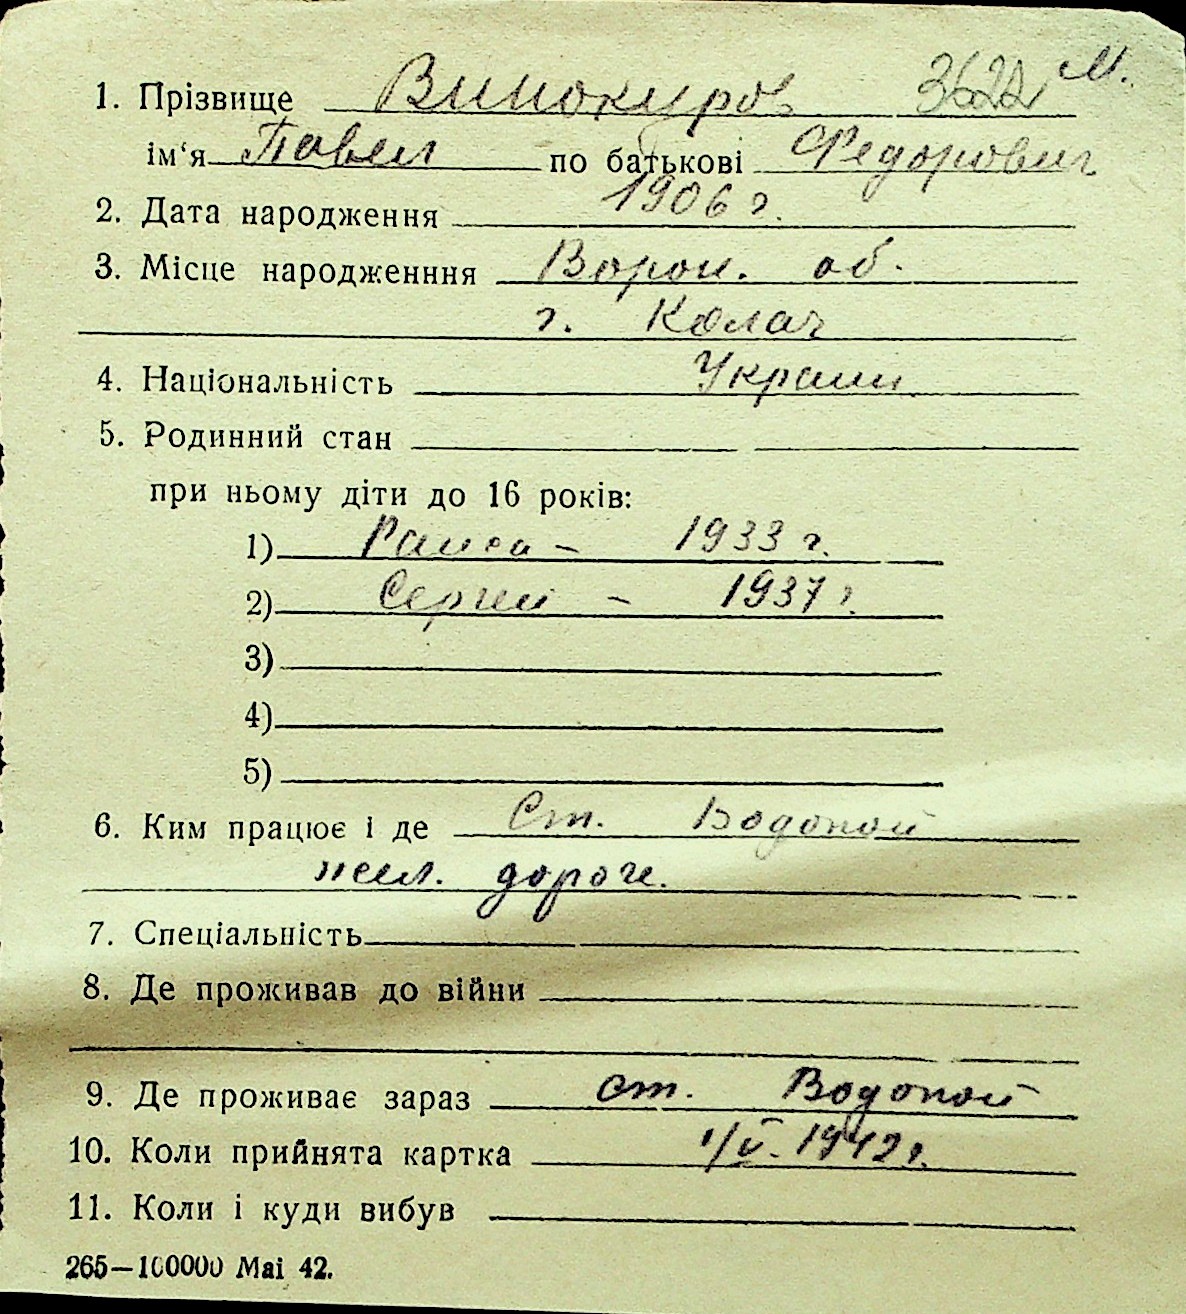 1. Прізвище Винокуров 3622 М.
ім‘я Павел по батькові Федорович
2. Дата народження 1906 г.
3. Місце народженння Ворон. об.
г. Колач
4. Національність Украин.
5. Родинний стан
при ньому діти до 16 років:
1) Раиса – 1933 г.
2) Сергей – 1937 г.
3)
4)
5)
6. Ким працює і де Ст. Водопой
жел. дороги.
7. Спеціальність
8. Де проживав до війни
9. Де проживає зараз ст. Водопой
10. Коли прийнята картка 1/V. 1942 г.
11. Коли і куди вибув
265—100000 Mai 42.